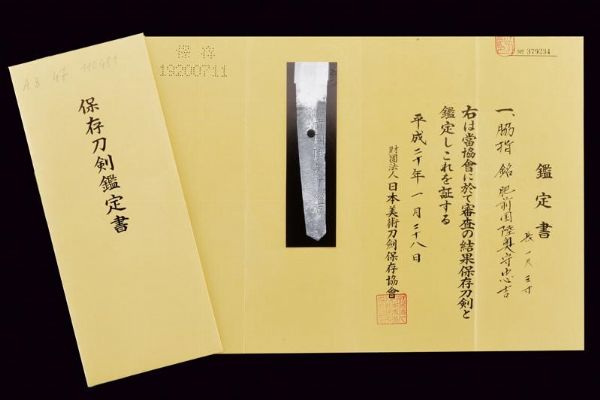 保存刀剣鑑定書
保存
19200711
№ 379234
鑑定書
一、脇指 銘 肥前国陸奥守忠吉
長一尺三寸
右は當協會に於て審査の結果保存刀剣と
鑑定しこれを証する
平成二十年一月二十八日
財団法人 日本美術刀剣保存協會